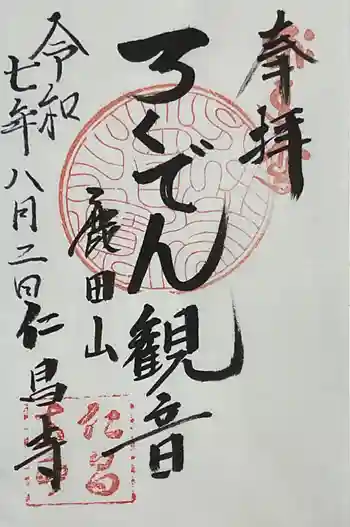 奉拝
ろくでん観音
鹿田山
令和七年八月二日
仁昌寺
仁昌